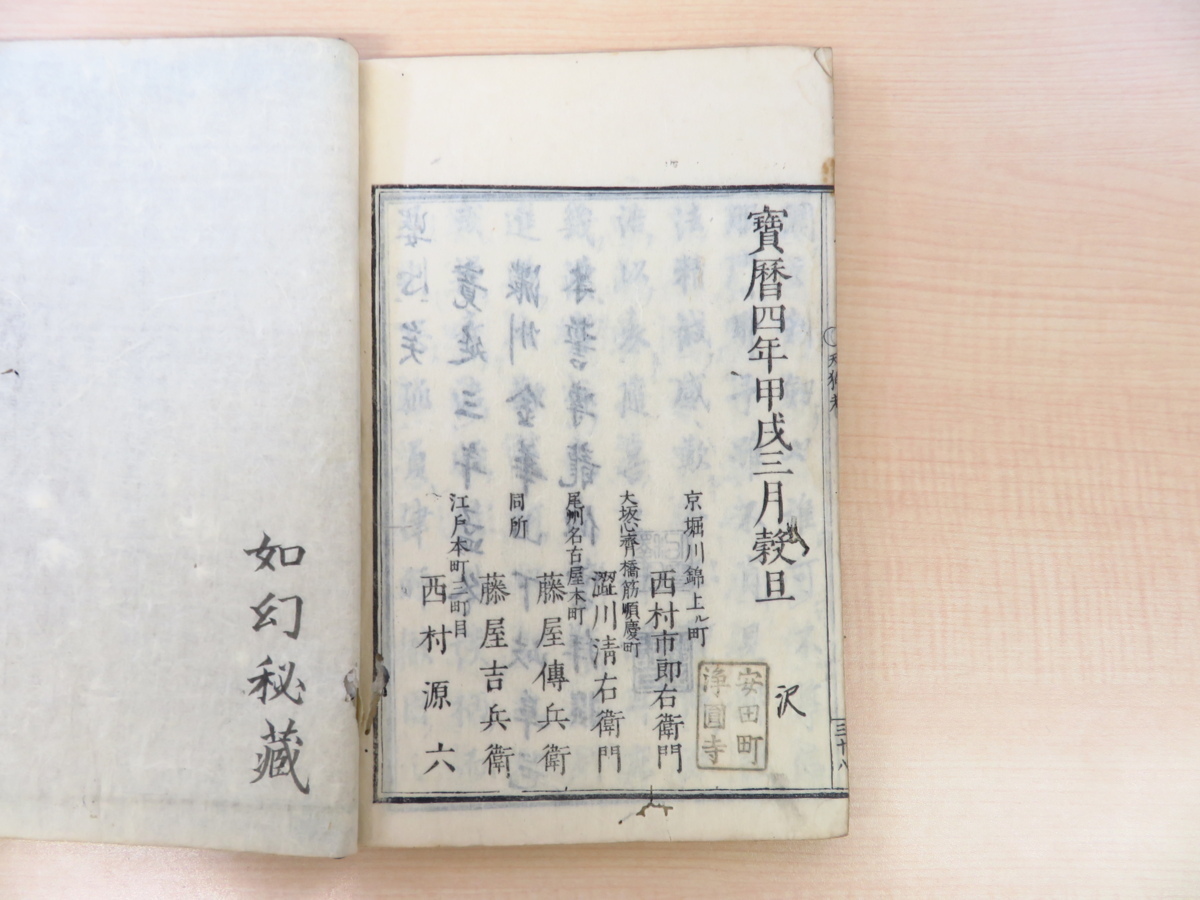 寶暦四年甲戌三月穀旦
沢
安田町
浄圓寺
京堀川錦上ル町
西村市郎右衛門
大坂心齊橋筋順慶町
澀川清右衛門
尾州名古屋本町
藤屋傳兵衛
同所
藤屋吉兵衛
江戸本町三町目
西村源六
三十八
如幻秘藏